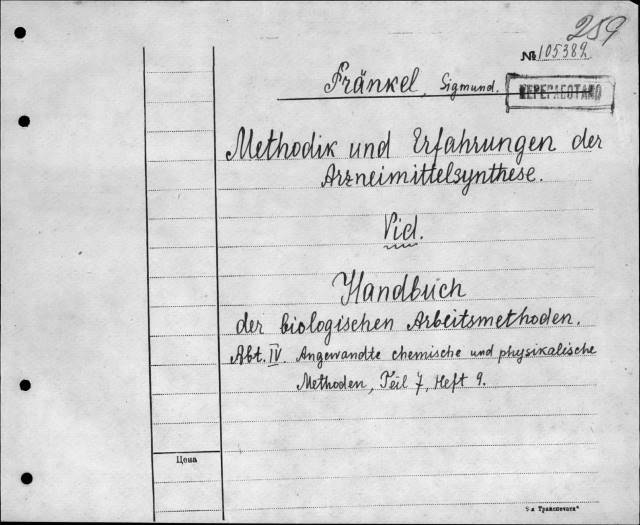 259
№ 105382
Fränkel, Sigmund.
ПЕРЕРАБОТАНО
Methodik und Erfahrungen der
Arzneimittelsynthese.
Vid.
Handbuch
der biologischen Arbeitsmethoden.
Abt. IV. Angewandte chemische und physikalische
Methoden, Teil 7, Heft 9.
Цена
9-я Транспечать"